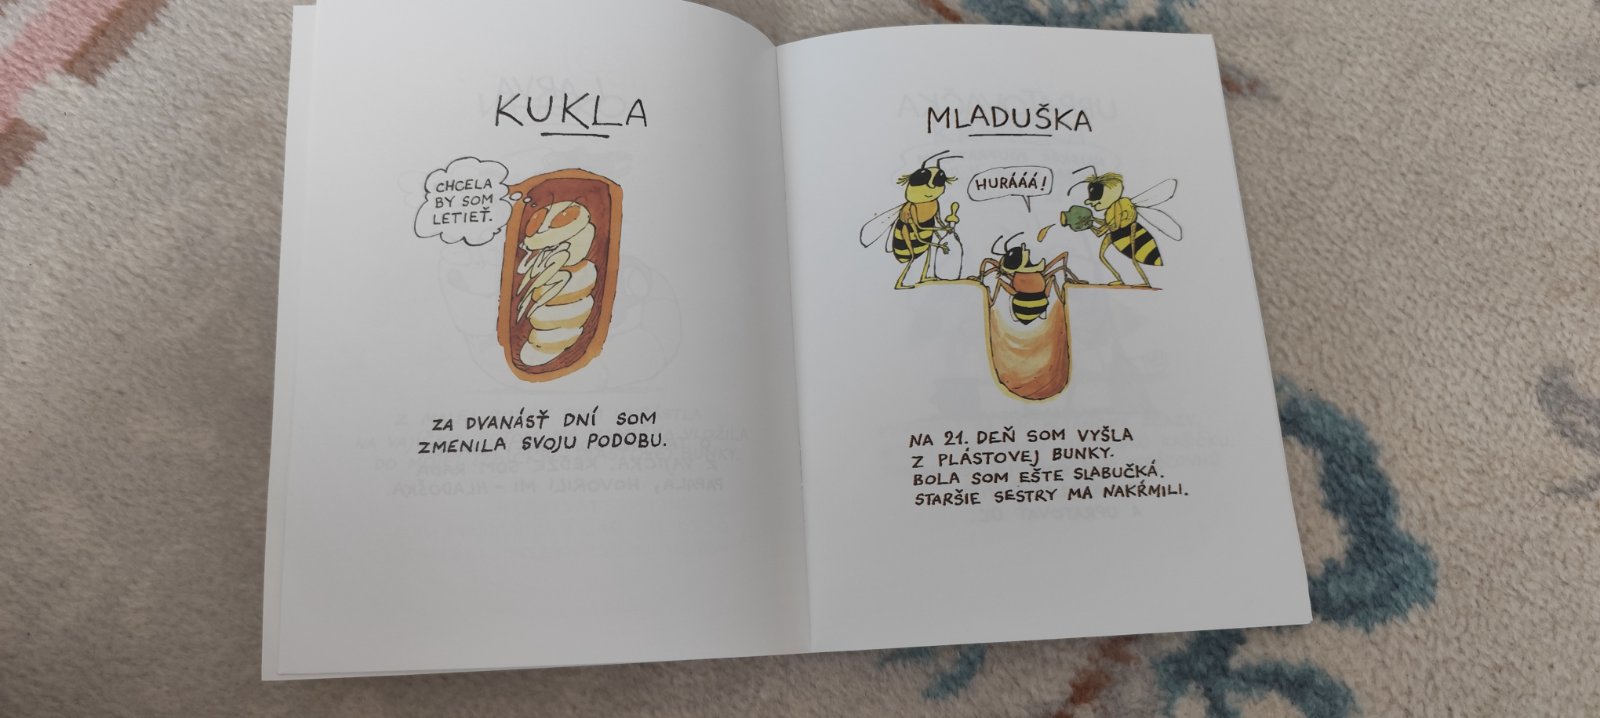 KUKLA
CHCELA
BY SOM
LETIEŤ.
ZA DVANÁSŤ DNÍ SOM
ZMENILA SVOJU PODOBU.
MLADUŠKA
HURÁÁÁ!
NA 21. DEŇ SOM VYŠLA
Z PLÁSTOVEJ BUNKY.
BOLA SOM EŠTE SLABUČKÁ.
STARŠIE SESTRY MA NAKŔMILI.